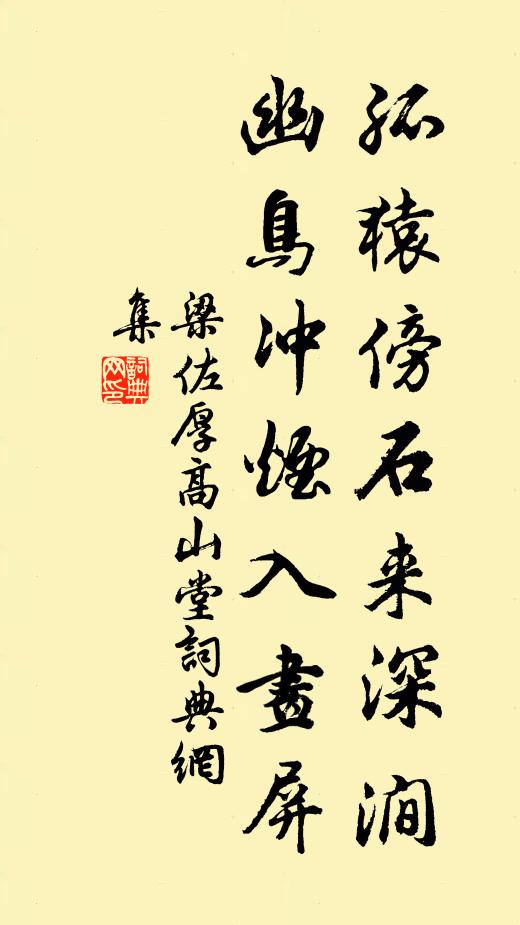 孤猿傍石来深涧
幽鳥冲煙入畫屏
梁佐厚高山堂詞典網
集
詞典網印